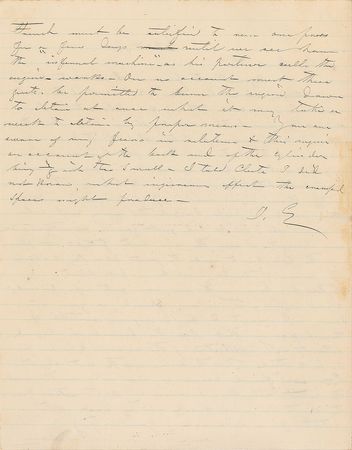 French must be satisfied to run one press
for a few days until we see how
the "infernal machine" - as his partner calls the
engine - works - On no account must these
parts be permitted to burn the engine down
to obtain at once what it may take a
week to obtain by proper means - You are
aware of my fears in relation to this engine
on account of the back end of the cylinder
being too small - I told Clute I did
not know what injurious effect the cramped
spaces might produce -
J. E